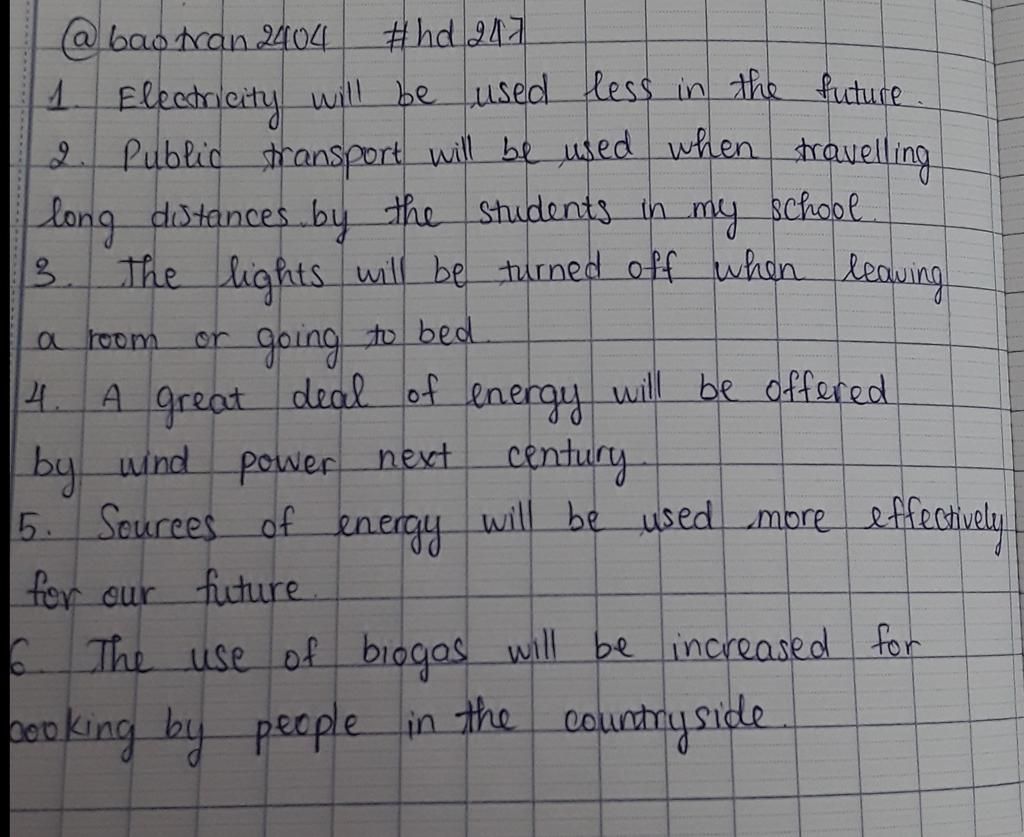 @baotran2404 #hd247
1. Electricity will be used less in the future.
2. Public transport will be used when travelling
long distances by the students in my school.
3. The lights will be turned off when leaving
a room or going to bed.
4. A great deal of energy will be offered
by wind power next century.
5. Sources of energy will be used more effectively
for our future.
6. The use of biogas will be increased for
cooking by people in the countryside.